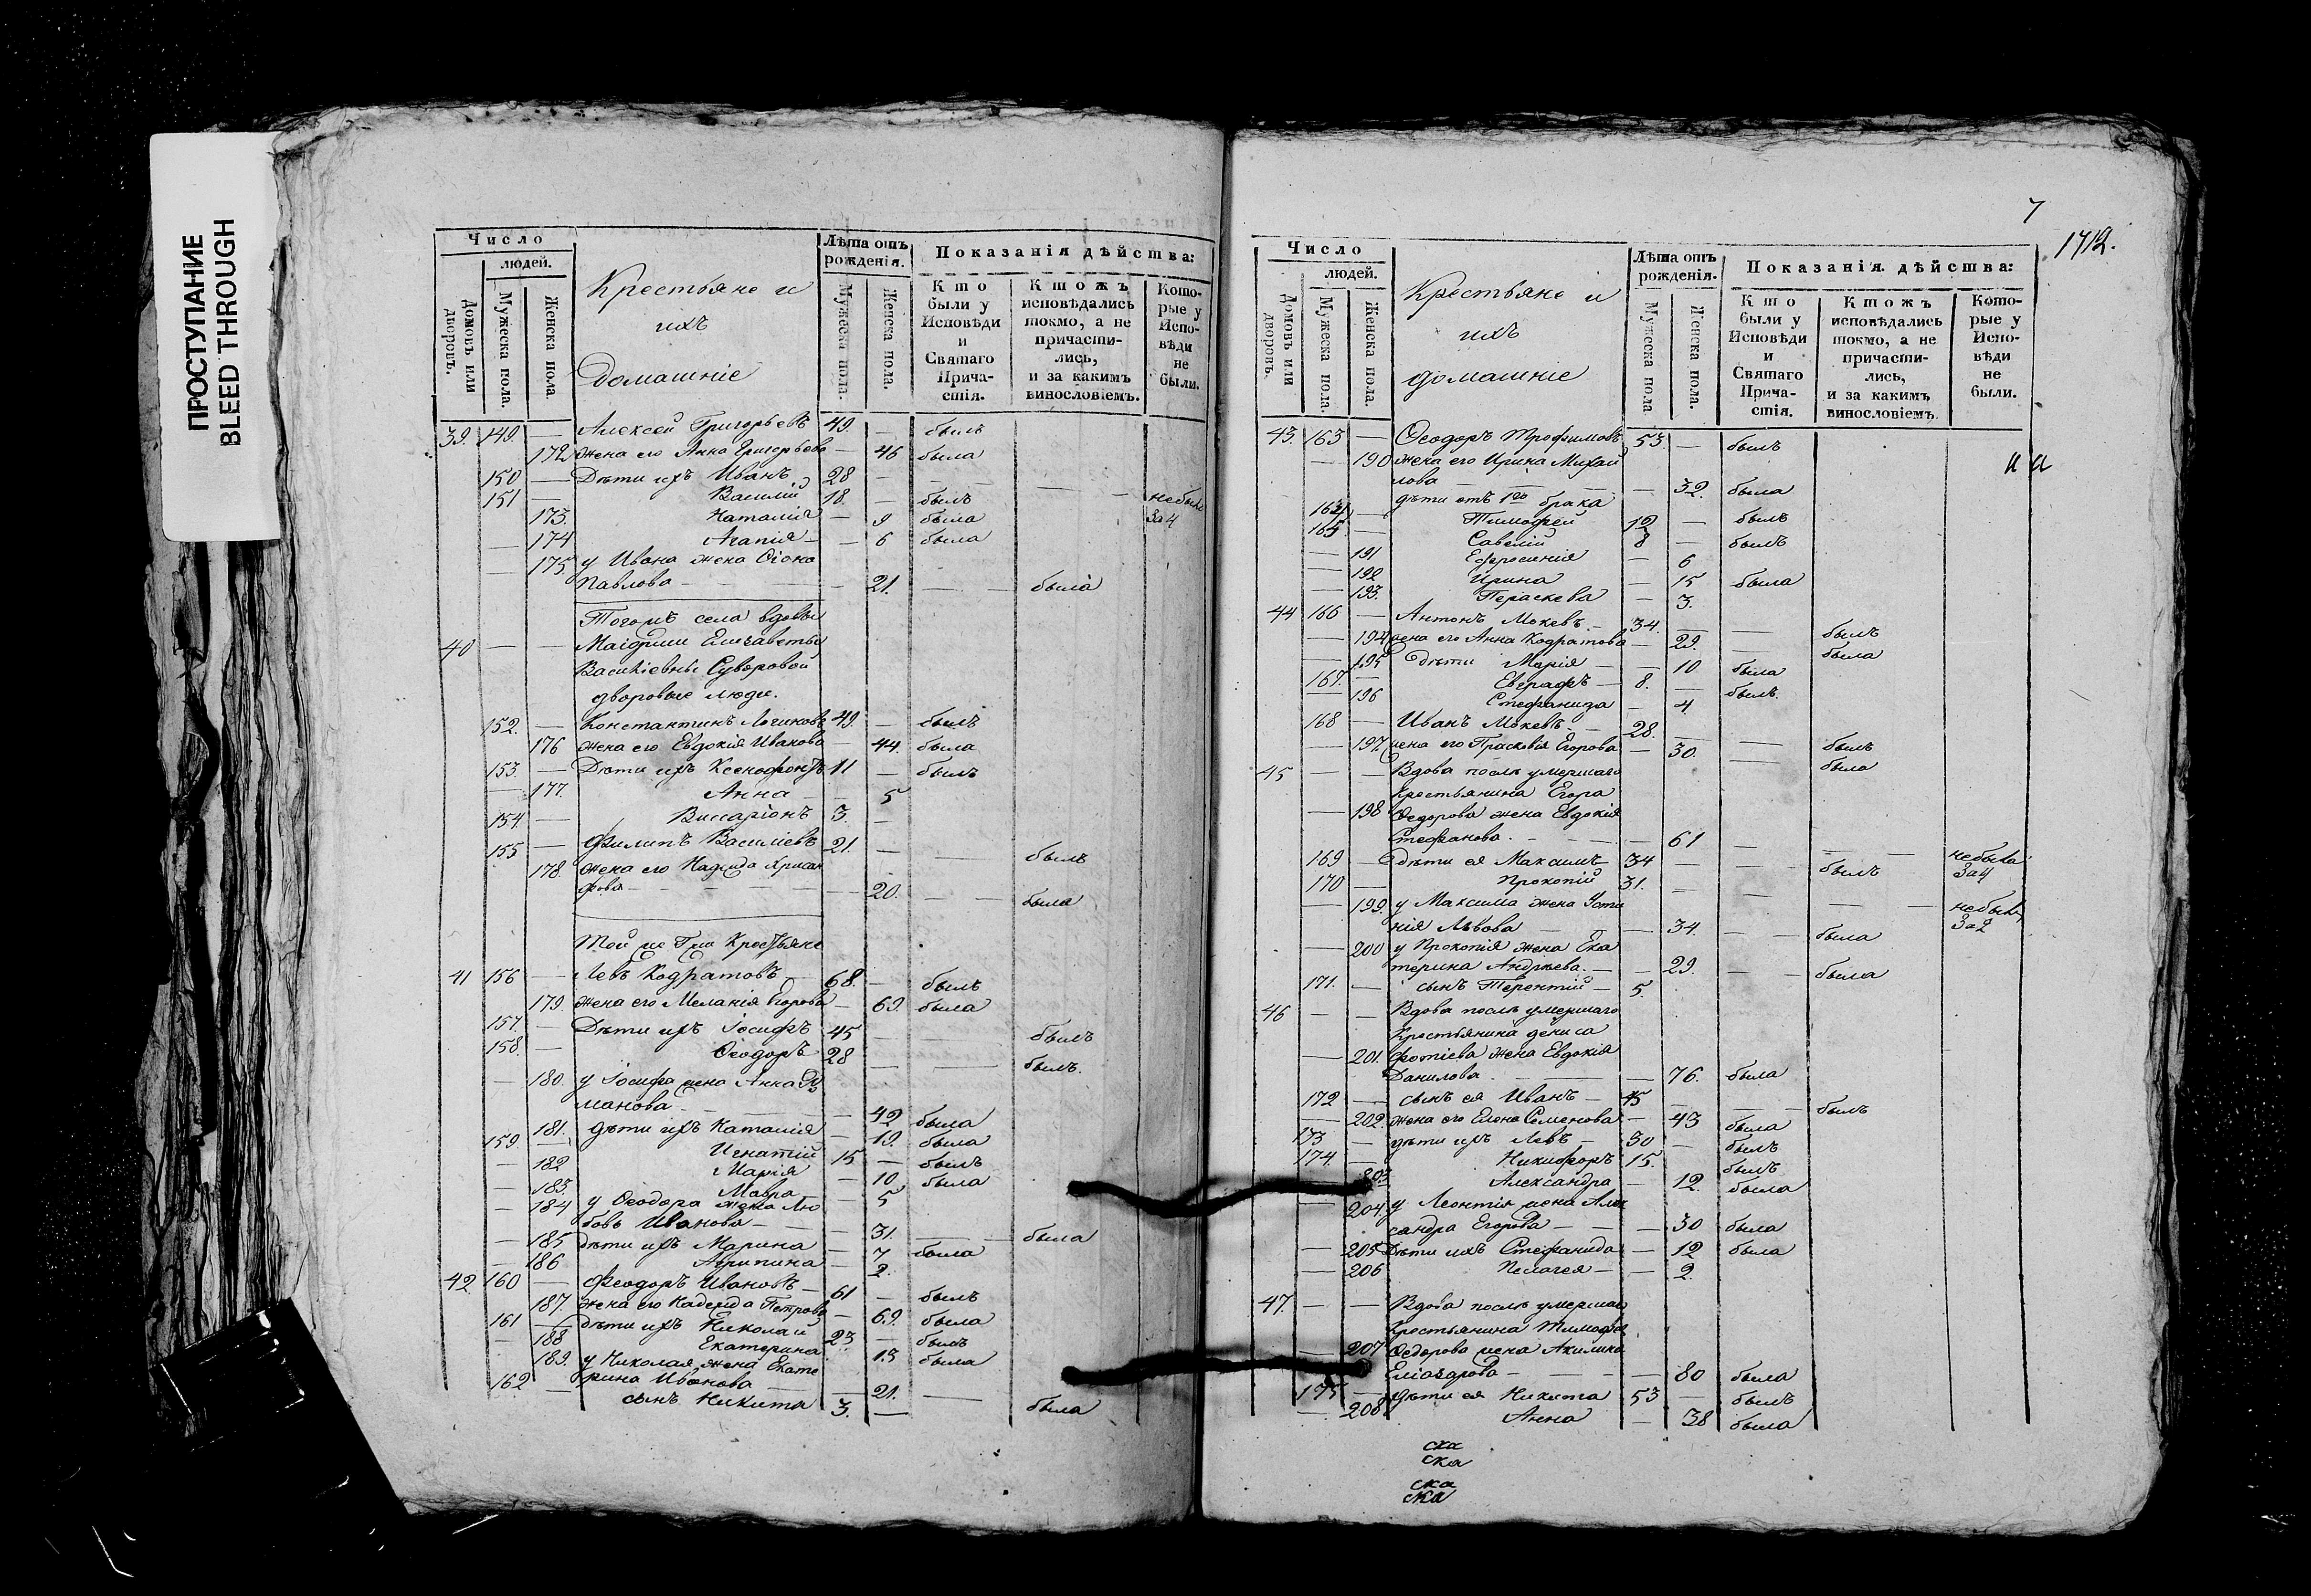 ПРОСТУПАНИЕ
BLEED THROUGH
Число
людей.
Домовъ или дворовъ.
Мужеска пола.
Женска пола.
Крестьяне и
ихъ
Домашніе
Лѣта отъ рожденія.
Мужеска пола.
Женска пола.
Показанія дѣйства:
Кто были у Исповѣди и Святаго Прича- стія.
Ктожъ исповѣдались токмо, а не причасти- лись, и за какимъ винословіемъ.
Кото- рые у Испо- вѣди не были.
39. 149. — Алексей Григорьевъ 49. — былъ
172 жена его Анна Григорьева — 46 была
150 — Дѣти ихъ Иванъ 28 — — — небылъ
151 — Василій 18. — былъ За 4
173. Наталія — 9 была
— 174 Агапія — — 6 была
— 175 у Ивана жена Ѳіона
Павлова — — 21. — — была
Тогожъ села вдовы
40 — — Маіорши Елизаветы
Василіевны Суворовой
дворовые люди.
152. — Константинъ Логиновъ 49. — былъ
176 жена его Евдокія Иванова — 44. была
153. — Дѣти ихъ Ксенофонтъ 11 — былъ
— 177. Анна — — 5
154. — Виссаріонъ 3. —
155 — Филипъ Василіевъ 21. — — — былъ
178. жена его Надежда Хрисан
фова — — — 20. — — была
Той же Гжи Крестьяне
41 156 — Левъ Кодратовъ — 68. — былъ
179. жена его Меланія Егорова — 69. была
157. — Дѣти ихъ Іосифъ 45 — — былъ
158. — Ѳеодоръ 28 — — былъ.
— 180. у Іосифа жена Анна Ро
манова — — 42 была
181. дѣти ихъ Наталія — 19. была
159 — Игнатій 15 — былъ
— 182 Марія — 10. была
— 183. Мавра — — 5
— 184 у Ѳеодора жена Лю
бовь Иванова — — 31. — — была
— 185 дѣти ихъ Марина — 7 была
— 186 Агрипина — 2.
42 160 — Феодоръ Ивановъ — 61 — былъ
187. жена его Надежда Петрова — 69. была
161 — дѣти ихъ Николай 23 — былъ
— 188 Екатерина 15 была
189. у Николая жена Екате
рина Иванова — — 21. — была
162 — сынъ Никита 3. —
7
1712.
Число
людей.
Домовъ или дворовъ.
Мужеска пола.
Женска пола.
Крестьяне и
ихъ
домашніе
Лѣта отъ рожденія.
Мужеска пола
Женска пола.
Показанія дѣйства:
Кто были у Исповѣди и Святаго Прича- стія.
Ктожъ исповѣдались токмо, а не причасти- лись, и за какимъ винословіемъ.
Кото- рые у Испо- вѣди не были.
43. 163 — Ѳеодоръ Трофимовъ 53. — былъ
— 190 жена его Ирина Михай
лова — — — 32. была
дѣти отъ 1го брака
164 — Тимофей 12 — былъ
165. — Савелій 8 — былъ
— 191 Ефросинія — 6
— 192 Ирина — 15 была
— 193. Параскева — 3.
44 166 — Антонъ Мокевъ — 34. — — былъ
— 194 жена его Анна Кодратова — 29. — была
— 195 дѣти Марія — — 10 была
167. — Евграфъ — 8. — былъ.
— 196 Стефанида — 4.
168 — Иванъ Мокевъ — 28. — — былъ
— 197 жена его Прасковія Егорова — 30. — была
45 — — Вдова послѣ умершаго
Крестьянина Егора
— 198 Ѳедорова жена Евдокія
Стефанова. — — 61 — — небыла
169 — дѣти ея Максимъ — 34 — — былъ За 4
170 — Прокопій 31. — — — небылъ
— 199. у Максима жена Усти За 2
нія Львова — — 34. — — была
— 200 у Прокопія жена Ека
терина Андреева. — — 29. — — была
171. — сынъ Терентій — 5.
46 — — Вдова послѣ умершаго
Крестьянина дениса
— 201. Фотіева жена Евдокія
Данилова. — — 76. была
172 — сынъ ея Иванъ — 45 — — — былъ
— 202. жена его Елена Семенова — 43 была
173 — дѣти ихъ Левъ — 30 — былъ
174. — Никифоръ 15. былъ
203. Александра — 12. была
— 204. у Леонтія жена Алек
сандра Егорова — — — 30 была
— 205 Дѣти ихъ Стефанида — 12 была
— 206 Пелагея — — 2.
47. — — Вдова послѣ умершаго
Крестьянина Тимофея
— 207 Ѳедорова жена Акилина
Еліазарова — — — 80 была
175 — дѣти ея Никита 53 — былъ
— 208. Анна — 38 была
ска
ска
ска
ска